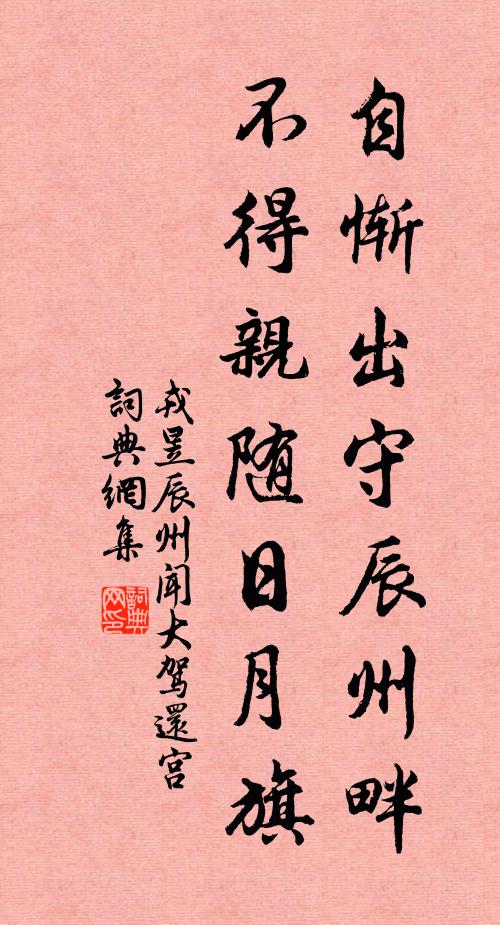 自惭出守辰州畔
不得親随日月旗
戎昱辰州聞大駕還宮
詞典網集
詞典网印